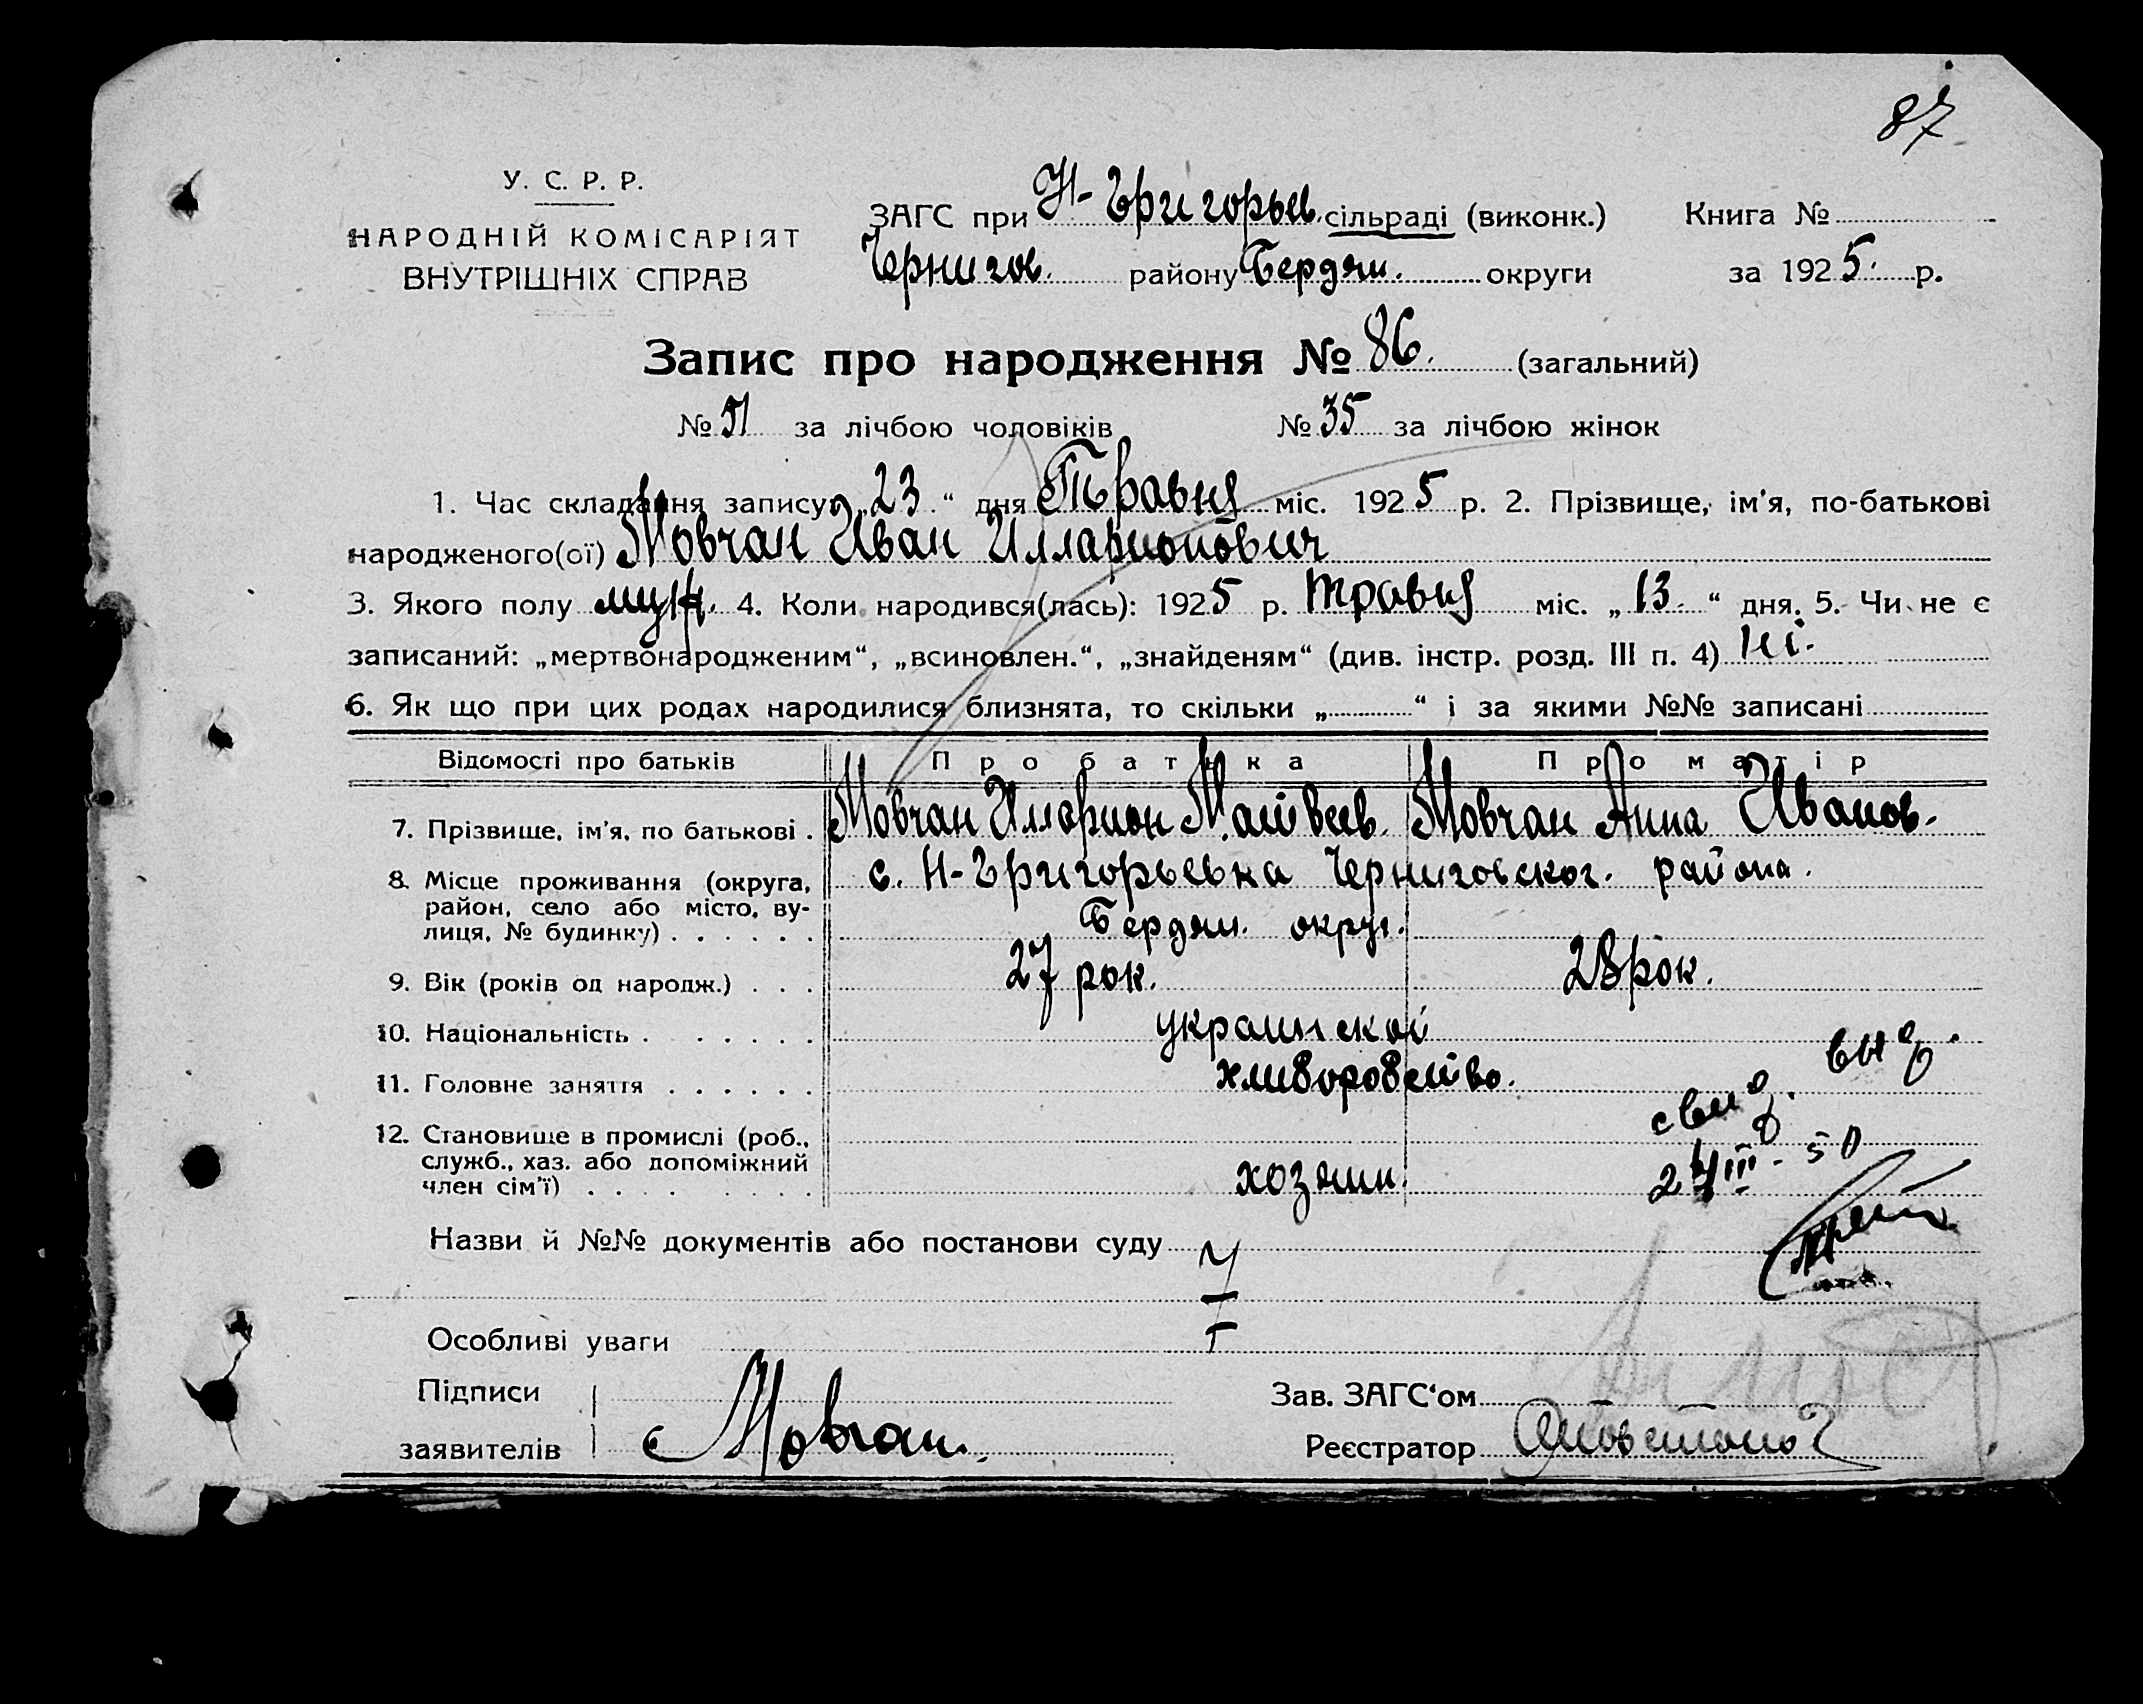 87
У. С. Р. Р.
НАРОДНІЙ КОМІСАРІЯТ
ВНУТРІШНІХ СПРАВ
ЗАГС при Н-Григорьев. сільраді (виконк.) Книга №
Чернигов. району Бердян. округи за 1925. р.
Запис про народження № 86. (загальний)
№ 51 за лічбою чоловіків № 35 за лічбою жінок
1. Час складання запису: „23“ дня Травня міс. 1925 р. 2. Прізвище, ім'я, по-батькові
народженого(ої) Мовчан Иван Илларионович
3. Якого полу муж. 4. Коли народився(лась): 1925 р. травня міс. „13.“ дня. 5. Чи не є
записаний: „мертвонародженим“, „всиновлен.“, „знайденям“ (див. інстр. розд. III п. 4) Ні.
6. Як що при цих родах народилися близнята, то скільки „ “ і за якими №№ записані
Відомості про батьків Про батька Про матір
7. Прізвище, ім'я, по батькові . Мовчан Иларион Матвеев. Мовчан Анна Иванов.
8. Місце проживання (округа, с. Н-Григорьевка Черниговског. района.
район, село або місто, ву-
лиця, № будинку) . . . . . . Бердян. округ.
9. Вік (років од народж.) . . . 27 рок. 28 рок.
10. Національність . . . . . . . украинской
11. Головне заняття . . . . . . хлиборобство.
выд.
свид.
12. Становище в промислі (роб.,
служб., хаз. або допоміжний
член сім'ї) . . . . . . . . хозяин. 24 III - 50
Назви й №№ документів або постанови суду
Особливі уваги
Підписи
заявителів Мовчан.
Зав. ЗАГС‘ом
Реєстратор